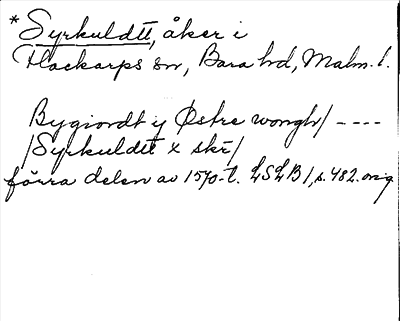 *Syrkuldtt, åker i
Flackarps sn, Bara hd, Malm. l.
Bygiordt y Østre wongh/ ----
/Syrkuldtt x skr/
förra delen av 1570-t. LSLB 1, s. 482. orig